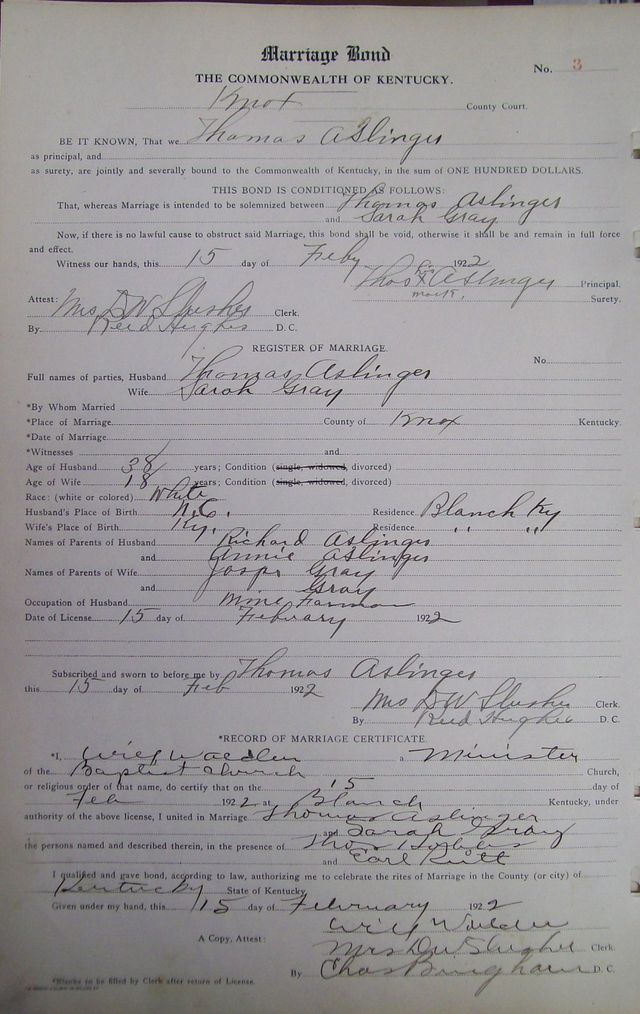 Marriage Bond
No. 3
THE COMMONWEALTH OF KENTUCKY.
Knox County Court.
BE IT KNOWN, That we Thomas Aslinger
as principal, and
as surety, are jointly and severally bound to the Commonwealth of Kentucky, in the sum of ONE HUNDRED DOLLARS.
THIS BOND IS CONDITIONED AS FOLLOWS:
That, whereas Marriage is intended to be solemnized between Thomas Aslinger
and Sarah Gray
Now, if there is no lawful cause to obstruct said Marriage, this bond shall be void, otherwise it shall be and remain in full force
and effect.
Witness our hands, this 15 day of Feby 1922
Thos X Aslinger Principal.
mark. Surety.
Attest: Mrs D W Slusher Clerk.
By Reed Hughes D. C.
REGISTER OF MARRIAGE.
No.
Full names of parties, Husband Thomas Aslinger
Wife Sarah Gray
*By Whom Married
*Place of Marriage County of Knox Kentucky.
*Date of Marriage
*Witnesses and
Age of Husband 38 years; Condition (single, widowed, divorced)
Age of Wife 18 years; Condition (single, widowed, divorced)
Race: (white or colored) White
Husband's Place of Birth N.C. Residence Blanch Ky
Wife's Place of Birth Ky. Residence " "
Names of Parents of Husband Richard Aslinger
and Annie Aslinger
Names of Parents of Wife Gray
and Gray
Occupation of Husband Mine
Date of License 15 day of February 1922
Subscribed and sworn to before me by Thomas Aslinger
this 15 day of Feb 1922
Mrs D W Slusher Clerk.
By Reed Hughes D. C.
*RECORD OF MARRIAGE CERTIFICATE.
*I, Will Walden a Minister
of the Baptist Church Church,
or religious order of that name, do certify that on the 15 day of
Feb 1922 at Blanch Kentucky, under
authority of the above license, I united in Marriage Thomas Aslinger
and Sarah Gray
the persons named and described therein, in the presence of Thos
and Earl
I qualified and gave bond, according to law, authorizing me to celebrate the rites of Marriage in the County (or city) of
Kentucky State of Kentucky
Given under my hand, this 15 day of February 1922
Will Walden
A Copy, Attest: Mrs D W Slusher Clerk.
By Chas Bingham D. C.
*Blanks to be filled by Clerk after return of License.